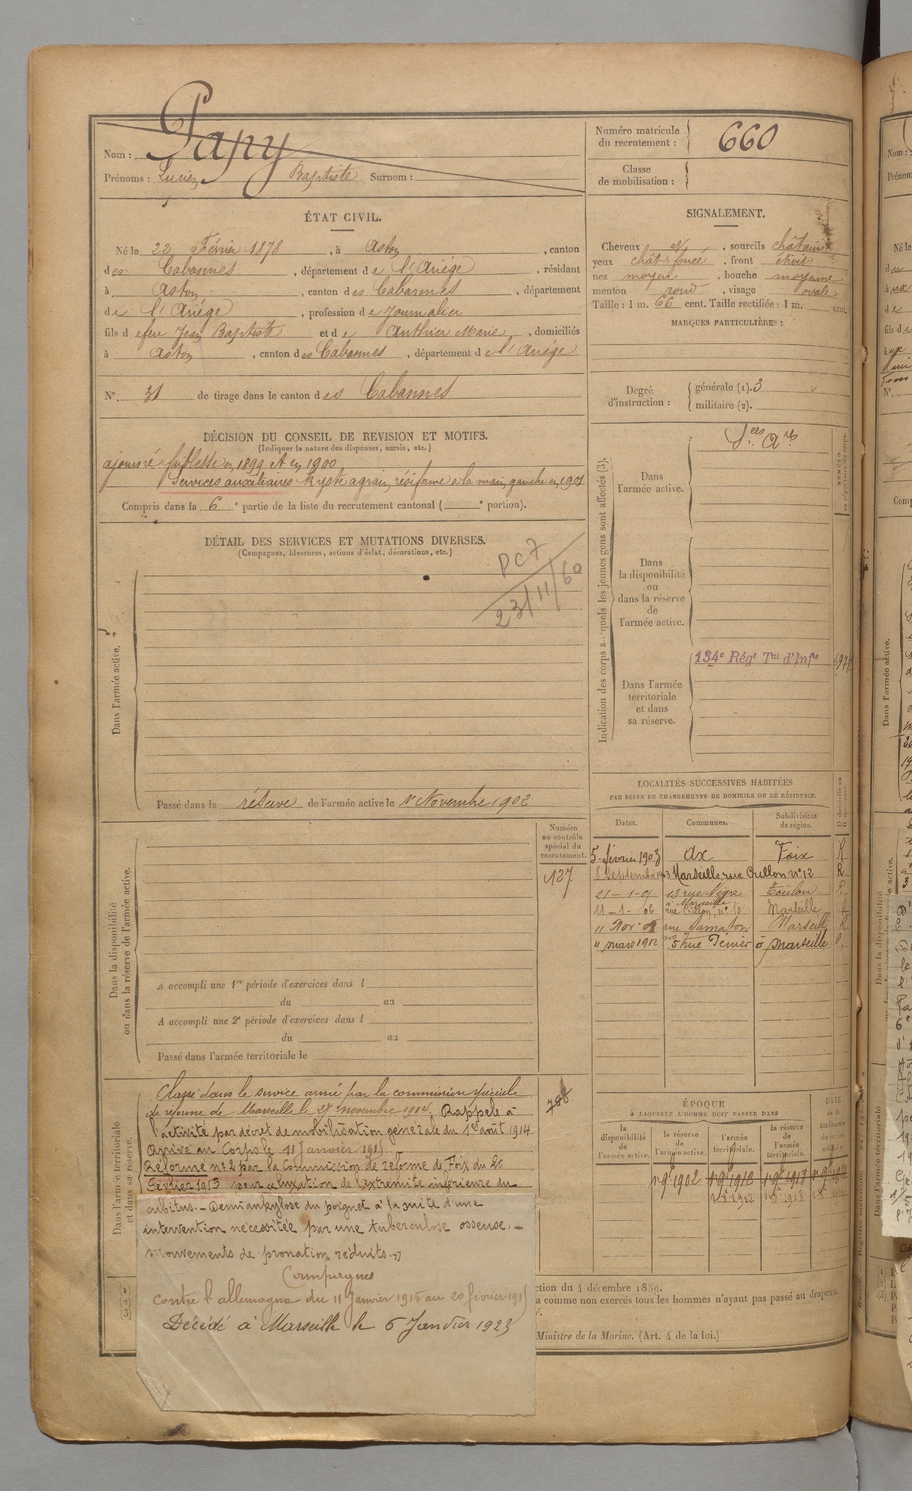 Nom : Papy
Prénoms : Lucien Baptiste Surnom :
Numéro matricule du recrutement : 660
Classe de mobilisation :
ÉTAT CIVIL.
Né le 22 Février 1878, à Aston, canton
des Cabannes, département de l'Ariège, résidant
à Aston, canton des Cabannes, département
de l'Ariège, profession de Journalier
fils de feu Jean Baptiste et de Authier Marie, domiciliés
à Aston, canton des Cabannes, département de l'Ariège
N° 31 de tirage dans le canton des Cabannes
SIGNALEMENT.
Cheveux et, sourcils châtains
yeux chât. foncé, front étroit
nez moyen, bouche moyenne
menton rond, visage ovale
Taille : 1 m. 66 cent. Taille rectifiée : 1 m. cent.
MARQUES PARTICULIÈRES :
Degré d'instruction : générale (1). 3
militaire (2).
DÉCISION DU CONSEIL DE REVISION ET MOTIFS.
(Indiquer la nature des dispenses, sursis, etc.)
ajourné faiblesse en 1899 et en 1900
Services auxiliaires Kyste à grains riziforme à la main gauche en 1901
Compris dans la 6e partie de la liste du recrutement cantonal ( e portion).
DÉTAIL DES SERVICES ET MUTATIONS DIVERSES.
(Campagnes, blessures, actions d'éclat, décorations, etc.)
PC 7
23/11/60
Dans l'armée active.
Passé dans la réserve de l'armée active le 1er Novembre 1902
Indication des corps auxquels les jeunes gens sont affectés (3).
Dans l'armée active.
Sces Ares
Dans la disponibilité ou dans la réserve de l'armée active.
Dans l'armée territoriale et dans sa réserve.
134e Régt Tal d'Infie
LOCALITÉS SUCCESSIVES HABITÉES
PAR SUITE DE CHANGEMENTS DE DOMICILE OU DE RÉSIDENCE.
Dates. Communes. Subdivisions de région.
5 février 1903 Ax Foix R
8 septembre 1903 Marseille rue Crillon n° 12 R
21-1-05 Toulon
11-1-06 à Marseille rue Crillon, n° 10 Marseille
11 Nov. Marseille R
11 mars 1912 à Marseille
Numéro au contrôle spécial du recrutement.
127
Dans la disponibilité ou dans la réserve de l'armée active.
A accompli une 1re période d'exercices dans l
du au
A accompli une 2e période d'exercices dans l
du au
Passé dans l'armée territoriale le
Dans l'armée territoriale et dans sa réserve.
Classé dans le service armé par la commission spéciale
de réforme de Marseille le 27 novembre 1914. Rappelé à
l'activité par décret de mobilisation générale du 1er août 1914
Arrivé au Corps le 11 Janvier 1915
Réformé n° 2 par la Commission de réforme de Foix du 20
Février 1915 pour luxation de l'extrémité inférieure du
cubitus. - Demi ankylose du poignet à la suite d'une
intervention nécessitée par une tuberculose osseuse. -
mouvements de pronation réduits.
Campagnes
contre l'allemagne du 11 Janvier 1915 au 20 février 1915
Décédé à Marseille le 6 Janvier 1923
ÉPOQUE
À LAQUELLE L'HOMME DOIT PASSER DANS
la disponibilité de l'armée active. la réserve de l'armée active. l'armée territoriale. la réserve de l'armée territoriale.
1902 1912 1918
1912 1918
ction du 4 décembre 1889.
a comme non exercés tous les hommes n'ayant pas passé au drapeau
Ministre de la Marine. (Art. 4 de la loi.)